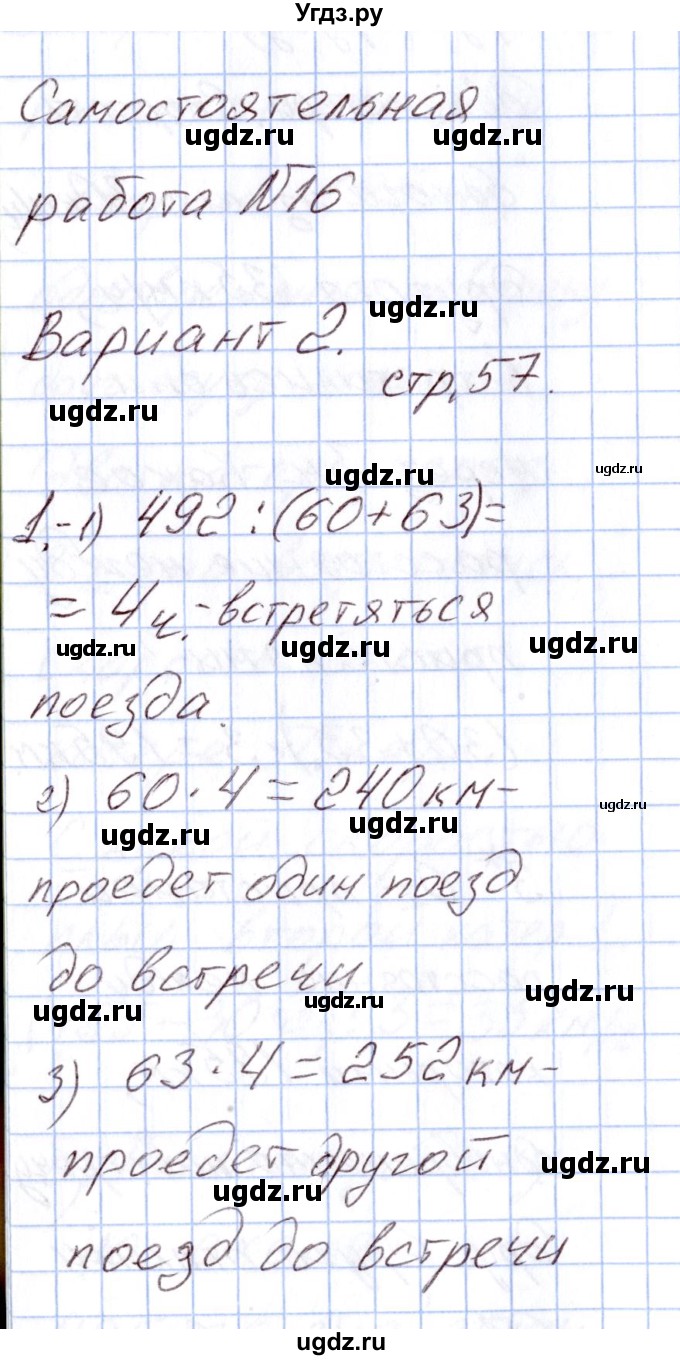 Угдз.ру
Самостоятельная
ugdz.ru ugdz.ru
работа №16
ugdz.ru
Вариант 2.
стр. 57.
ugdz.ru
ugdz.ru ugdz.ru
1.-1) 492:(60+63)=
= 4ч.-встретяться
ugdz.ru ugdz.ru ugdz.ru
поезда.
2) 60·4=240км-
ugdz.ru ugdz.ru ugdz.ru
проедет один поезд
до встречи
ugdz.ru ugdz.ru ugdz.ru
3) 63·4=252км-
проедет другой
ugdz.ru ugdz.ru
поезд до встречи
ugdz.ru